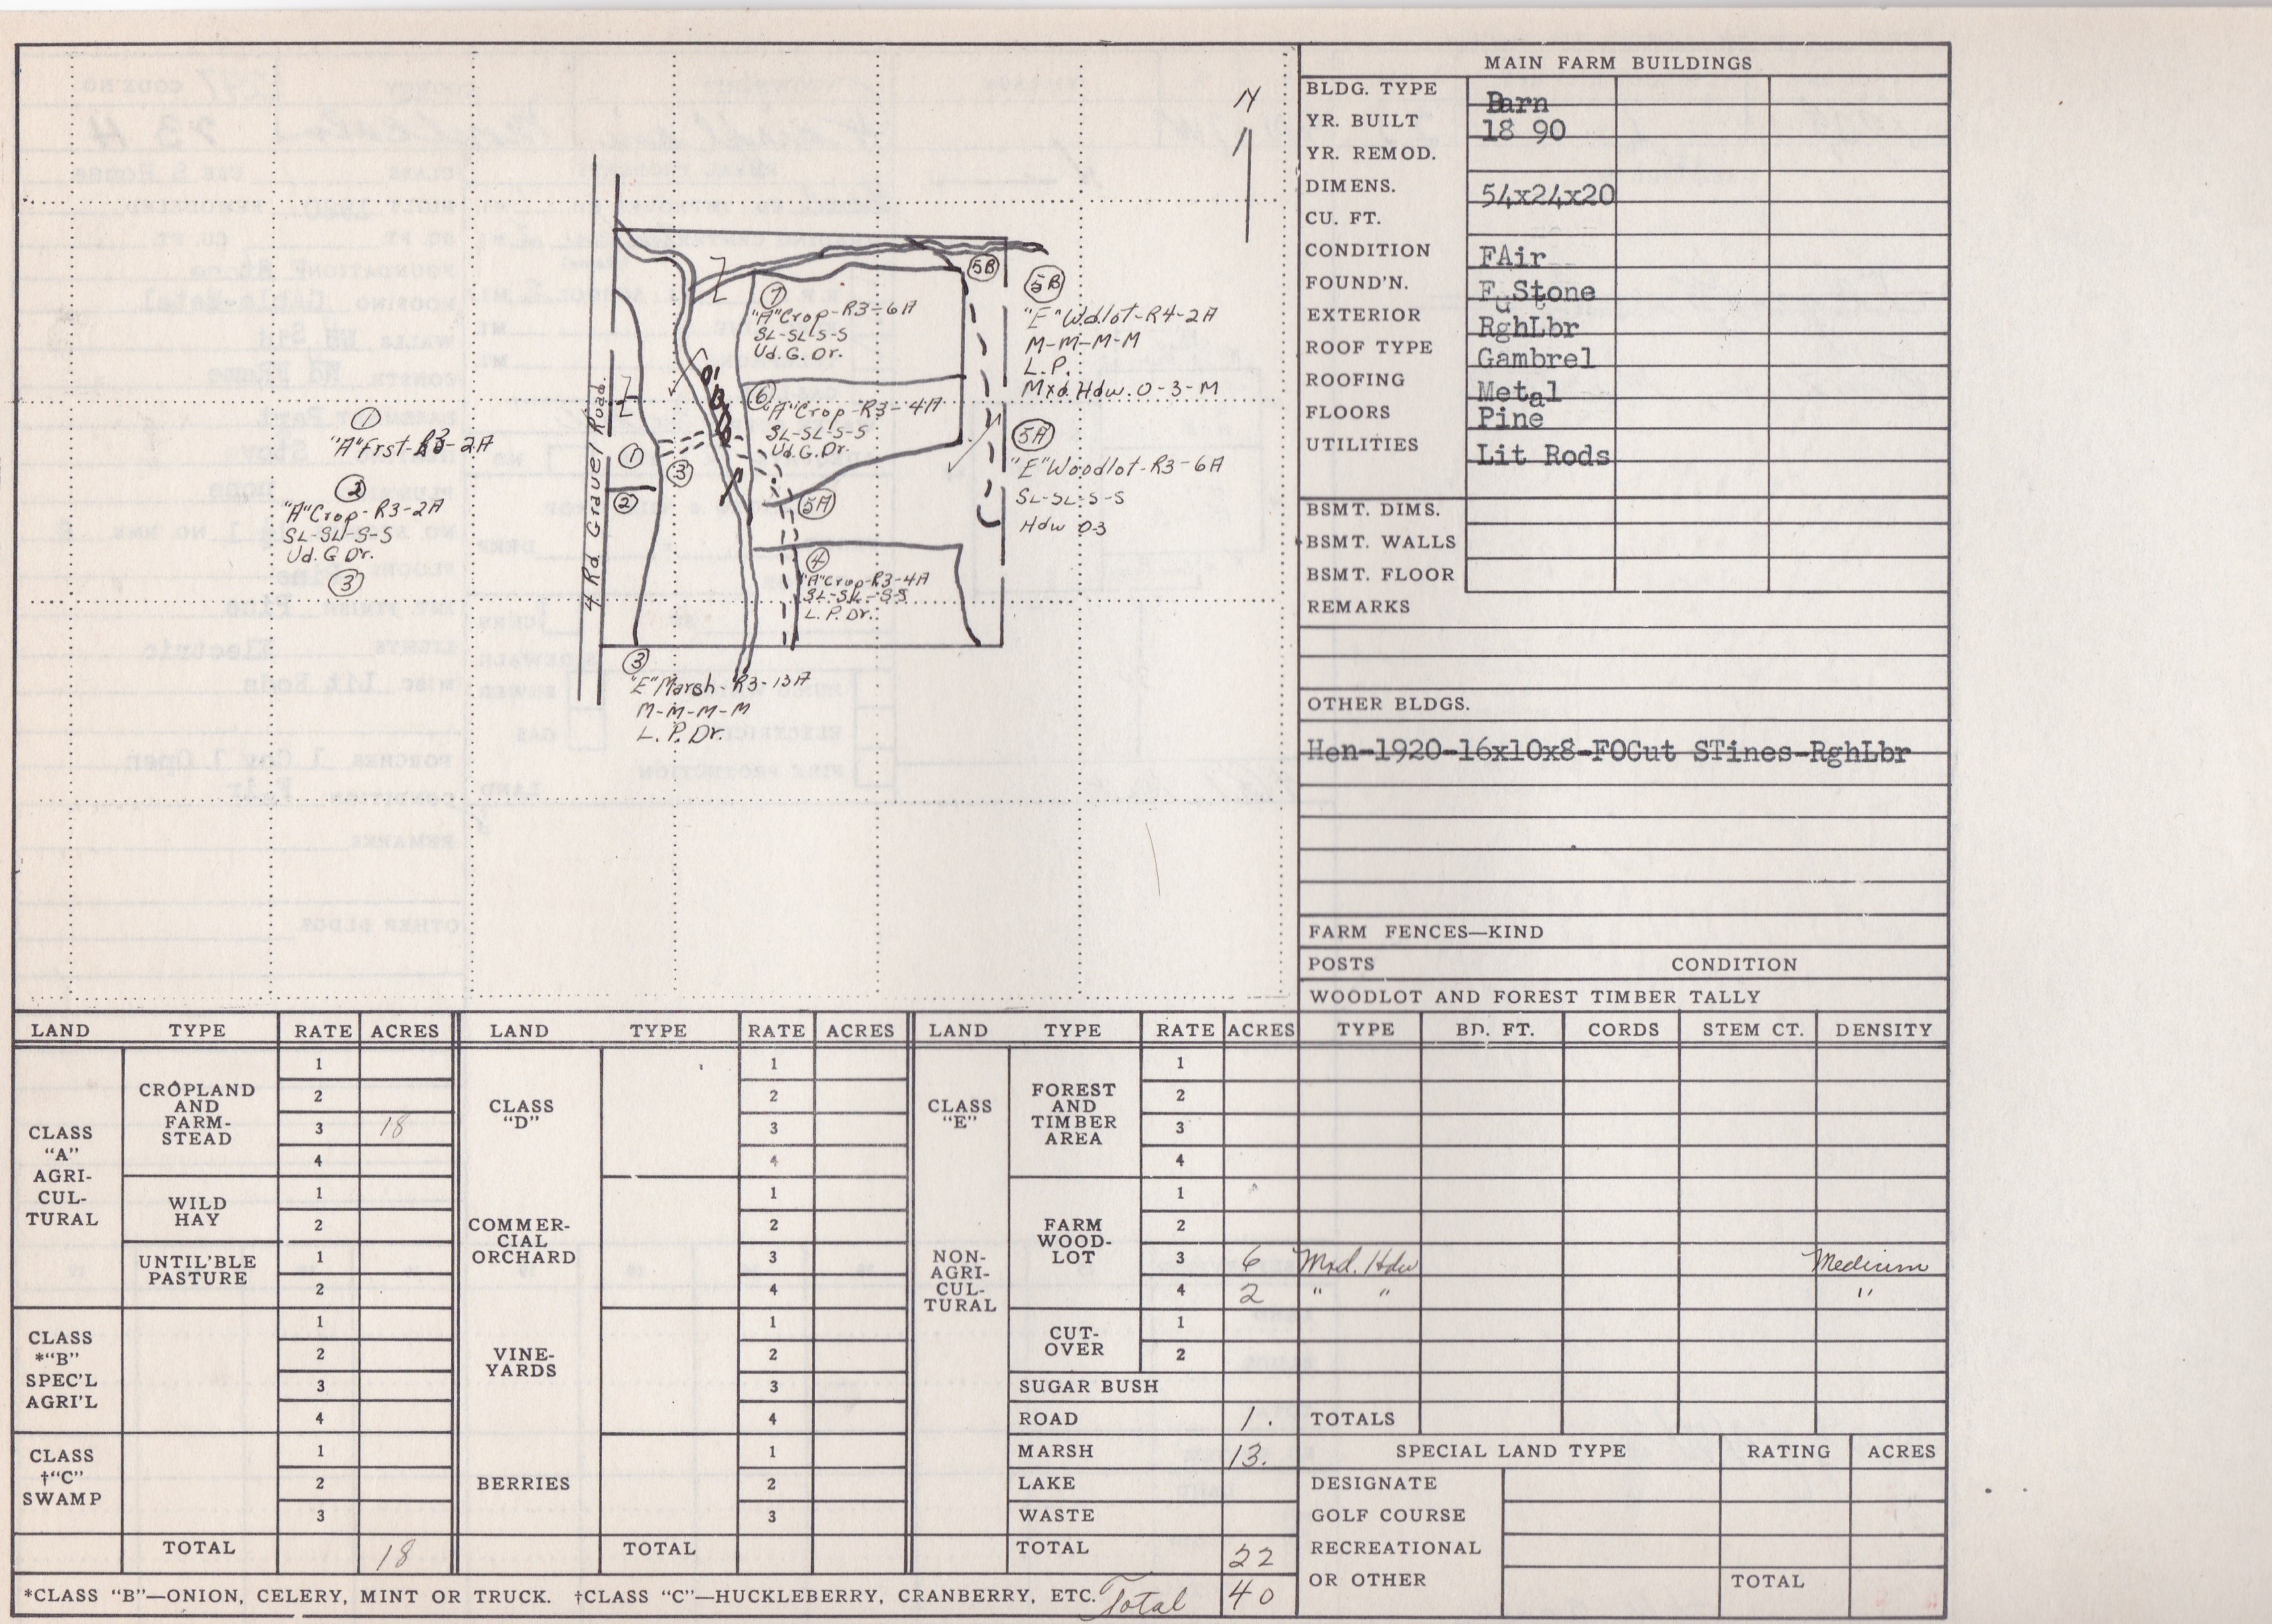 N
4 Rd Gravel Road.
①
"A" Frst-R3-2A
②
"A" Crop-R3-2A
SL-SL-S-S
Ud. G. Dr.
③
⑦
"A" Crop-R3-6A
SL-SL-S-S
Ud. G. Dr.
⑥
"A" Crop-R3-4A
SL-SL-S-S
Ud. G. Dr.
①
②
③
5A
5B
④
"A" Crop-R3-4A
SL-SL-S-S
L. P. Dr.
③
"E" Marsh-R3-13A
M-M-M-M
L. P. Dr.
5B
"E" Wdlot-R4-2A
M-M-M-M
L. P.
Mxd. Hdw. 0-3-M
5A
"E" Woodlot-R3-6A
SL-SL-S-S
Hdw 0-3
MAIN FARM BUILDINGS
BLDG. TYPE Barn
YR. BUILT 18 90
YR. REMOD.
DIMENS. 54x24x20
CU. FT.
CONDITION FAir
FOUND'N. Stone
EXTERIOR RghLbr
ROOF TYPE Gambrel
ROOFING Metal
FLOORS Pine
UTILITIES Lit Rods
BSMT. DIMS.
BSMT. WALLS
BSMT. FLOOR
REMARKS
OTHER BLDGS.
Hen-1920-16x10x8-FOCut STines-RghLbr
FARM FENCES—KIND
POSTS CONDITION
WOODLOT AND FOREST TIMBER TALLY
LAND TYPE RATE ACRES LAND TYPE RATE ACRES LAND TYPE RATE ACRES TYPE BD. FT. CORDS STEM CT. DENSITY
CLASS
"A"
AGRI-
CUL-
TURAL
CROPLAND
AND
FARM-
STEAD
1
2
3 18
4
WILD
HAY
1
2
UNTIL'BLE
PASTURE
1
2
CLASS
*"B"
SPEC'L
AGRI'L
1
2
3
4
CLASS
†"C"
SWAMP
1
2
3
TOTAL 18
CLASS
"D"
1
2
3
4
COMMER-
CIAL
ORCHARD
1
2
3
4
VINE-
YARDS
1
2
3
4
BERRIES
1
2
3
TOTAL
CLASS
"E"
NON-
AGRI-
CUL-
TURAL
FOREST
AND
TIMBER
AREA
1
2
3
4
FARM
WOOD-
LOT
1
2
3 6 Mxd. Hdw Medium
4 2 " " "
CUT-
OVER
1
2
SUGAR BUSH
ROAD 1. TOTALS
MARSH 13. SPECIAL LAND TYPE RATING ACRES
LAKE DESIGNATE
WASTE GOLF COURSE
TOTAL 22 RECREATIONAL
OR OTHER TOTAL
*CLASS "B"—ONION, CELERY, MINT OR TRUCK. †CLASS "C"—HUCKLEBERRY, CRANBERRY, ETC. Total 40